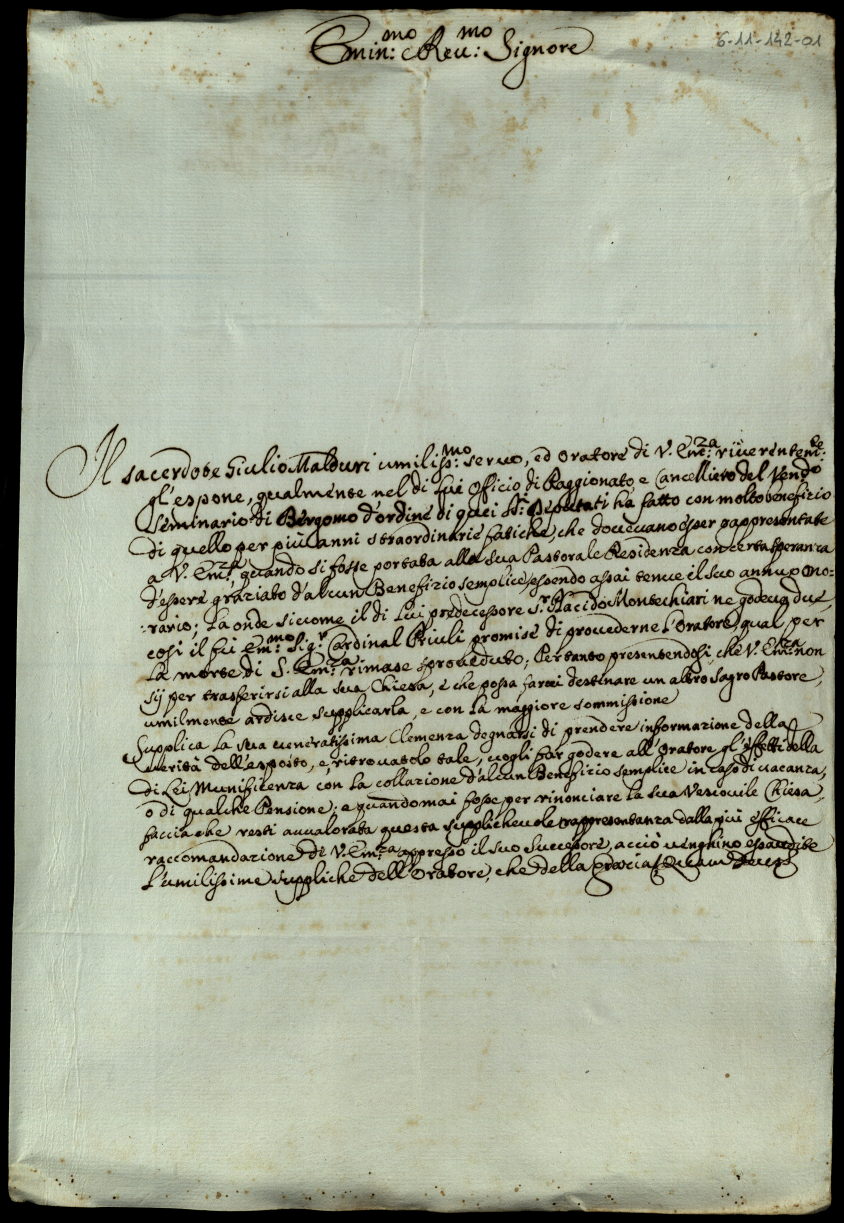 Emin:mo e Reu:mo Signore
6-11-142-01
Il sacerdote Giulio Malduri umiliss:mo seruo, ed oratore di V. Em:za riuerentem:te
gl'espone, qualmente nel di lui officio di Raggionato e Cancelliero del Vendo
Seminario di Bergomo d'ordine di quei SS:ri Deputati hà fatto con molto benefizio
di quello per più anni straordinarie fatiche, che doueuano esser rappresentate
a V. Em:za, quando si fosse portata alla sua Pastorale Residenza con certa speranza
d'essere graziato d'alcun Benefizio semplice, essendo assai tenue il suo annuo ono:
:rario; La onde siccome il di lui predecessore S:r Placido Montechiari ne godeua due,
così il fù Em:mo Sig:r Cardinal Priuli promise di prouederne l'Oratore, qual per
la morte di S. Em:za rimase sproueduto; Pertanto presentendosi, che V. Em:za non
sij per trasferirsi alla sua Chiesa, e che possa farui destinare un altro Sagro Pastore,
umilmente ardisce supplicarla, e con la maggiore sommissione
Supplica la sua ueneratissima Clemenza degnarsi di prendere informazione della
uerità dell'esposto, e, ritrouatolo tale, uogli far godere all'Oratore gl'effetti della
di Lei Munificenza con la collazione d'alcun Benefizio semplice in caso di uacanza,
o di qualche Pensione; e quando mai fosse per rinonciare la sua Vescouile Chiesa,
faccia che resti auualorata questa supplicheuole rappresentanza dalla più efficace
raccomandazione di V. Em:za appresso il suo Successore, acciò uenghino essaudite
l'umilissime suppliche dell'Oratore, che della Grazia, Quam Deus